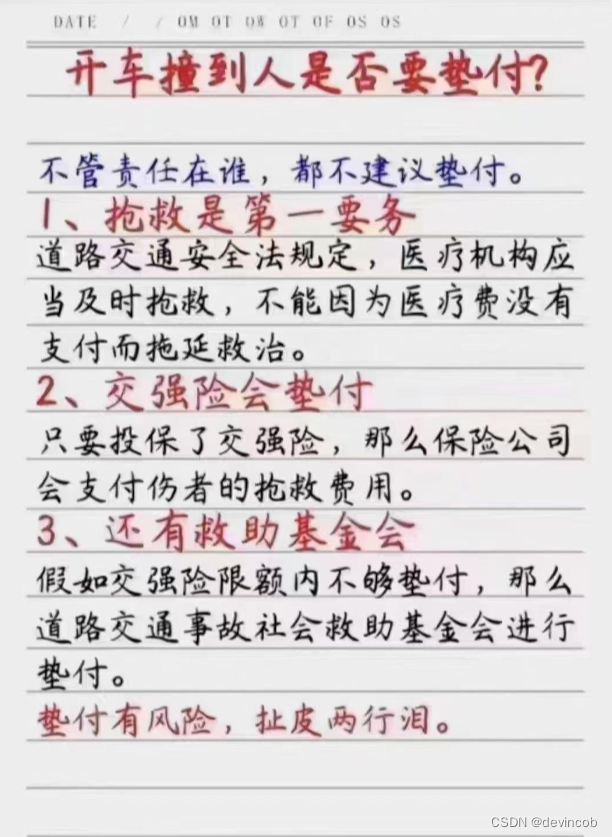 DATE / / OM OT OW OT OF OS OS
开车撞到人是否要垫付?
不管责任在谁，都不建议垫付。
1、抢救是第一要务
道路交通安全法规定，医疗机构应
当及时抢救，不能因为医疗费没有
支付而拖延救治。
2、交强险会垫付
只要投保了交强险，那么保险公司
会支付伤者的抢救费用。
3、还有救助基金会
假如交强险限额内不够垫付，那么
道路交通事故社会救助基金会进行
垫付。
垫付有风险，扯皮两行泪。
CSDN @devincob